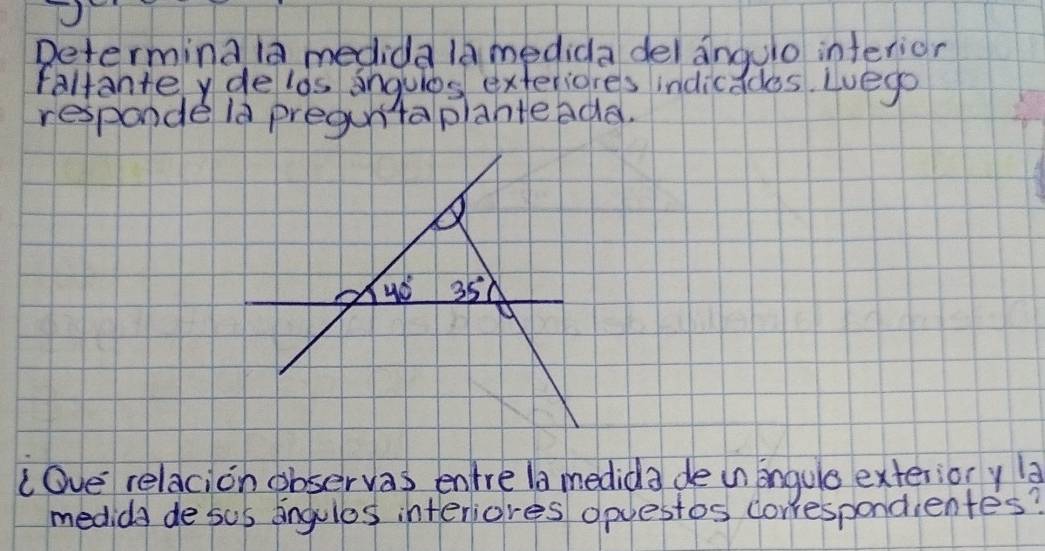 Determina la medida la medida del ángulo interior
faltante y de los ángulos exteriores indicados. Luego
responde la pregunta planteada.
40° 35°
¿Qué relación observas entre la medida de un ángulo exterior y la
medida de sus ángulos interiores opuestos correspondientes?